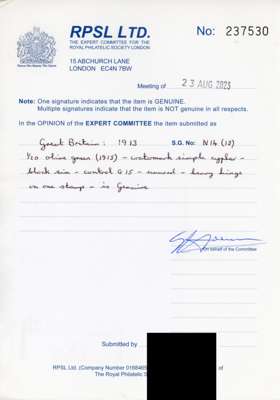 RPSL LTD.
THE EXPERT COMMITTEE FOR THE
ROYAL PHILATELIC SOCIETY LONDON
No: 237530
15 ABCHURCH LANE
LONDON EC4N 7BW
Meeting of 23 AUG 2023
Note: One signature indicates that the item is GENUINE.
Multiple signatures indicate that the item is NOT genuine in all respects.
In the OPINION of the EXPERT COMMITTEE the item submitted as
Great Britain: 1913 S.G. No: N14 (12)
olive green (1913) - watermark simple cypher -
block six - control G 15 - unused - heavy hinge
on one stamp - is Genuine
On behalf of the Committee
Submitted by
RPSL Ltd. (Company Number of
The Royal Philatelic